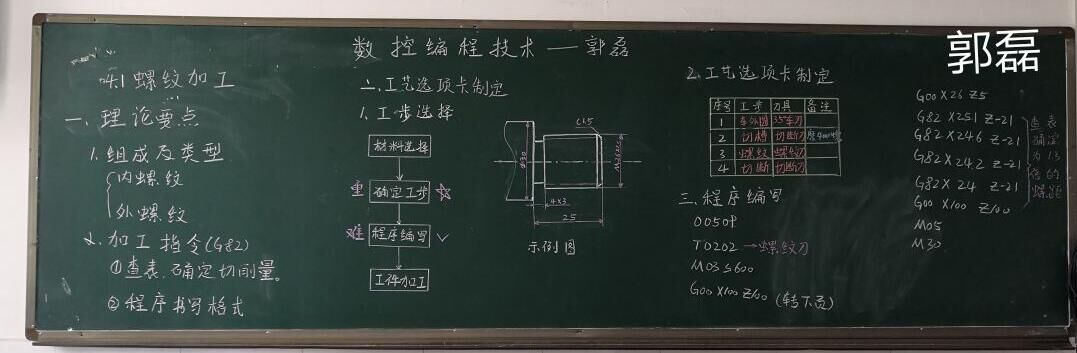 数控编程技术—郭磊
郭磊
4.1 螺纹加工
一、理论要点
1. 组成及类型
内螺纹
外螺纹
2. 加工指令(G82)
①查表,确定切削量。
②程序书写格式
二、工艺选项卡制定
1. 工步选择
材料选择
重 确定工步 ☆
难 程序编写 √
工件加工
C1.5
φ30
4×3
25
示例图
2. 工艺选项卡制定
序号 工步 刀具 备注
1 车外圆 35°车刀
2 切槽 切断刀
3 螺纹 螺纹刀
4 切断 切断刀
三、程序编写
O0509
T0202 → 螺纹刀
M03 S600
G00 X100 Z100 (转下页)
G00 X26 Z5
G82 X25.1 Z-21
G82 X24.6 Z-21
G82 X24.2 Z-21
G82 X24 Z-21
G00 X100 Z100
M05
M30
查表
确定
为1.5
的
螺距